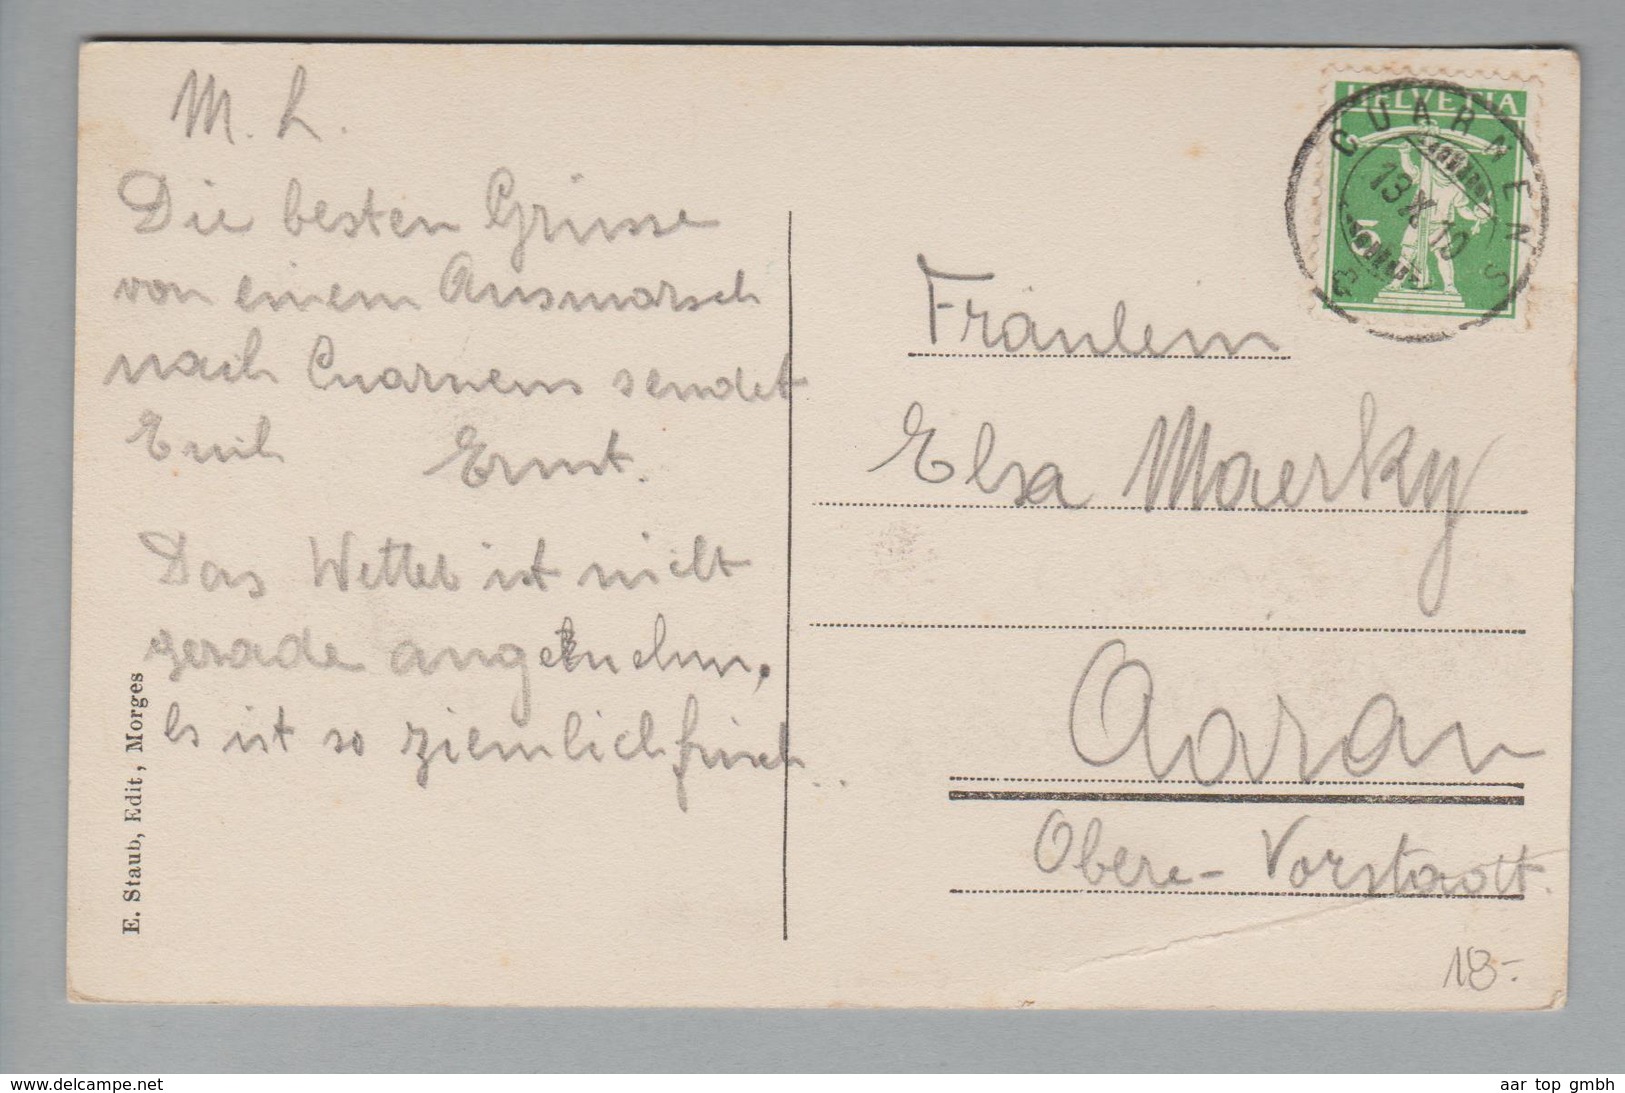 M. L.
Die besten Grüsse
von einem Ausmarsch
nach Cuarnens sendet
Emil Ernst.
Das Wetter ist nicht
gerade angenehm,
Es ist so ziemlich frisch..
E. Staub, Edit, Morges
HELVETIA
5
CUARNENS
13 X 10
Fräulein
Elsa Maerky
Aarau
Obere-Vorstadt.
18-
www.delcampe.net
aar top gmbh